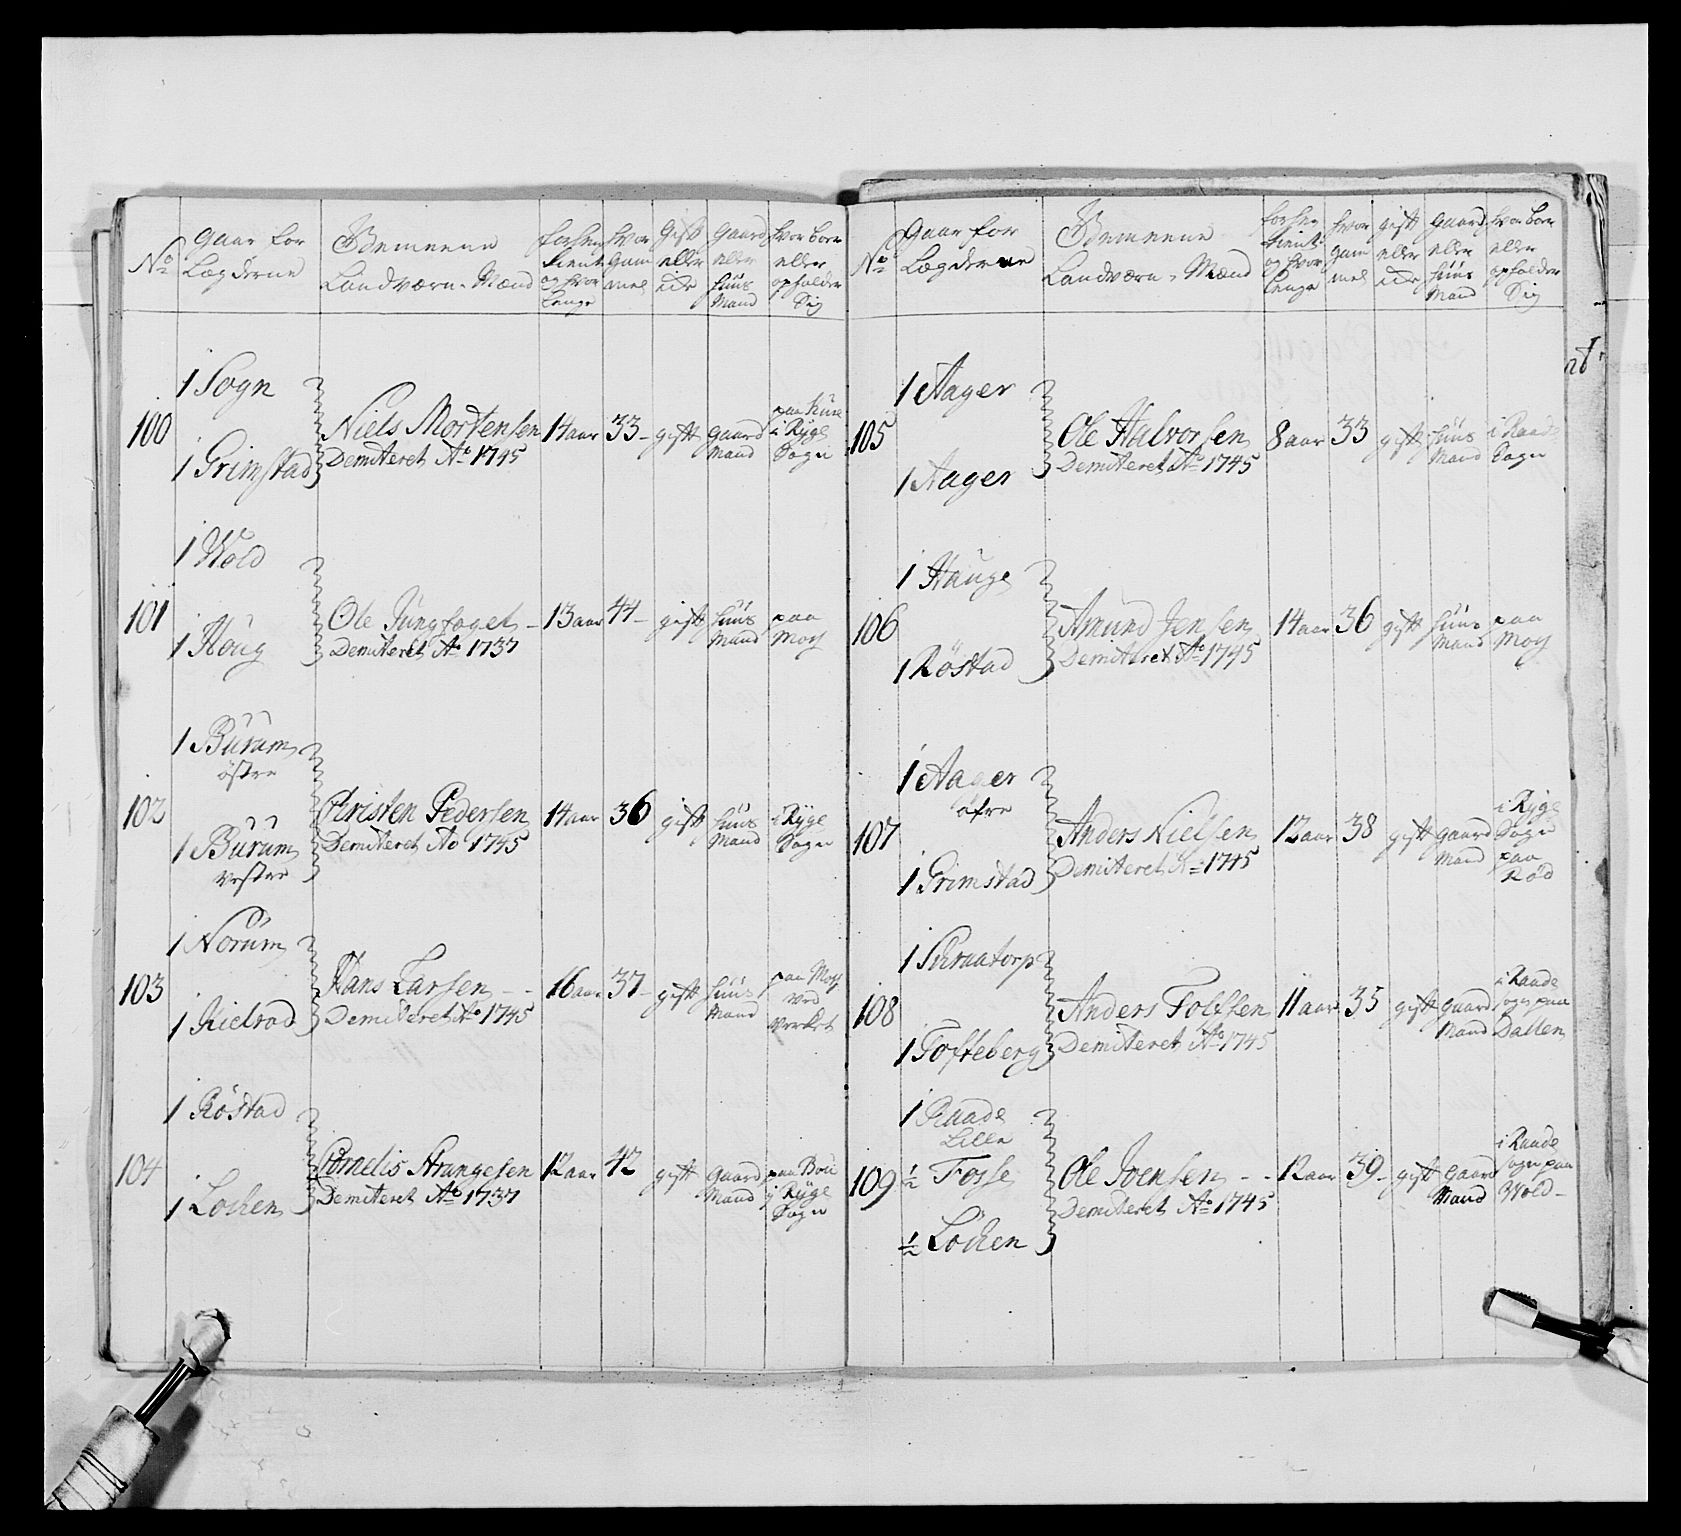 No
Gaar for
Lægderne
Bemeene
Landværn-Mænd
forhen
tient
og hvor
lenge
hvor
gam
mel
Gift
eller
ide
gaard
eller
huus
Mand
hvor boer
eller
opholder
Sig
100
1 Sogn
1 Grimstad
Niels Mortensen
Demitteret Ao 1745
14 aar
33-
gift
gaard
Mand
paa
i Ryge
Sogn
101
1 Wold
1 Houg
Ole
Demitteret Ao 1737
13 aar
44-
gift
huus
Mand
paa
Moss
102
1 Burum
østre
1 Burum
vestre
Christen Pedersen
Demitteret Ao 1745
14 aar
36
gift
huus
Mand
i Ryge
Sogn
103
1 Norum
1 Kielsrod
Hans Larsen - -
Demitteret Ao 1745
16 aar
37-
gift
huus
Mand
paa Moss
ved
verket
104
1 Röstad
1 Löcken
Cornelis Strangesen
Demitteret Ao 1737
12 aar
42
gift
gaard
Mand
paa
i Ryge
Sogn
No
Gaar for
Lægderne
Bemeene
Landværn-Mænd
forhen
tient
og hvor
lenge
hvor
gam
mel
gift
eller
ide
gaard
eller
huus
Mand
hvor boer
eller
opholder
Sig
105
1 Aager
1 Aager
Ole Halvorsen
Demitteret Ao 1745
8 aar
33
gift
huus
Mand
i Raade
Sogn
106
1 Hauge
1 Röstad
Amund Jensen
Demitteret Ao 1745
14 aar
36
gift
huus
Mand
paa
Moss
107
1 Aager
øfre
1 Grimstad
Anders Nielsen
Demitteret Ao 1745
12 aar
38
gift
gaard
Mand
i Ryge
Sogn
paa
Rød
108
1 Skraatorp
1 Tofteberg
Anders Tollesen
Demitteret Ao 1745
11 aar
35
gift
gaard
Mand
i Raade
sogn paa
Dallen
109
1 Raade
Lille
1/2 Fosse
1/2 Löcken
Ole Joensen - -
Demitteret Ao 1745
12 aar
39-
gift
gaard
Mand
i Raade
sogn paa
Wold-